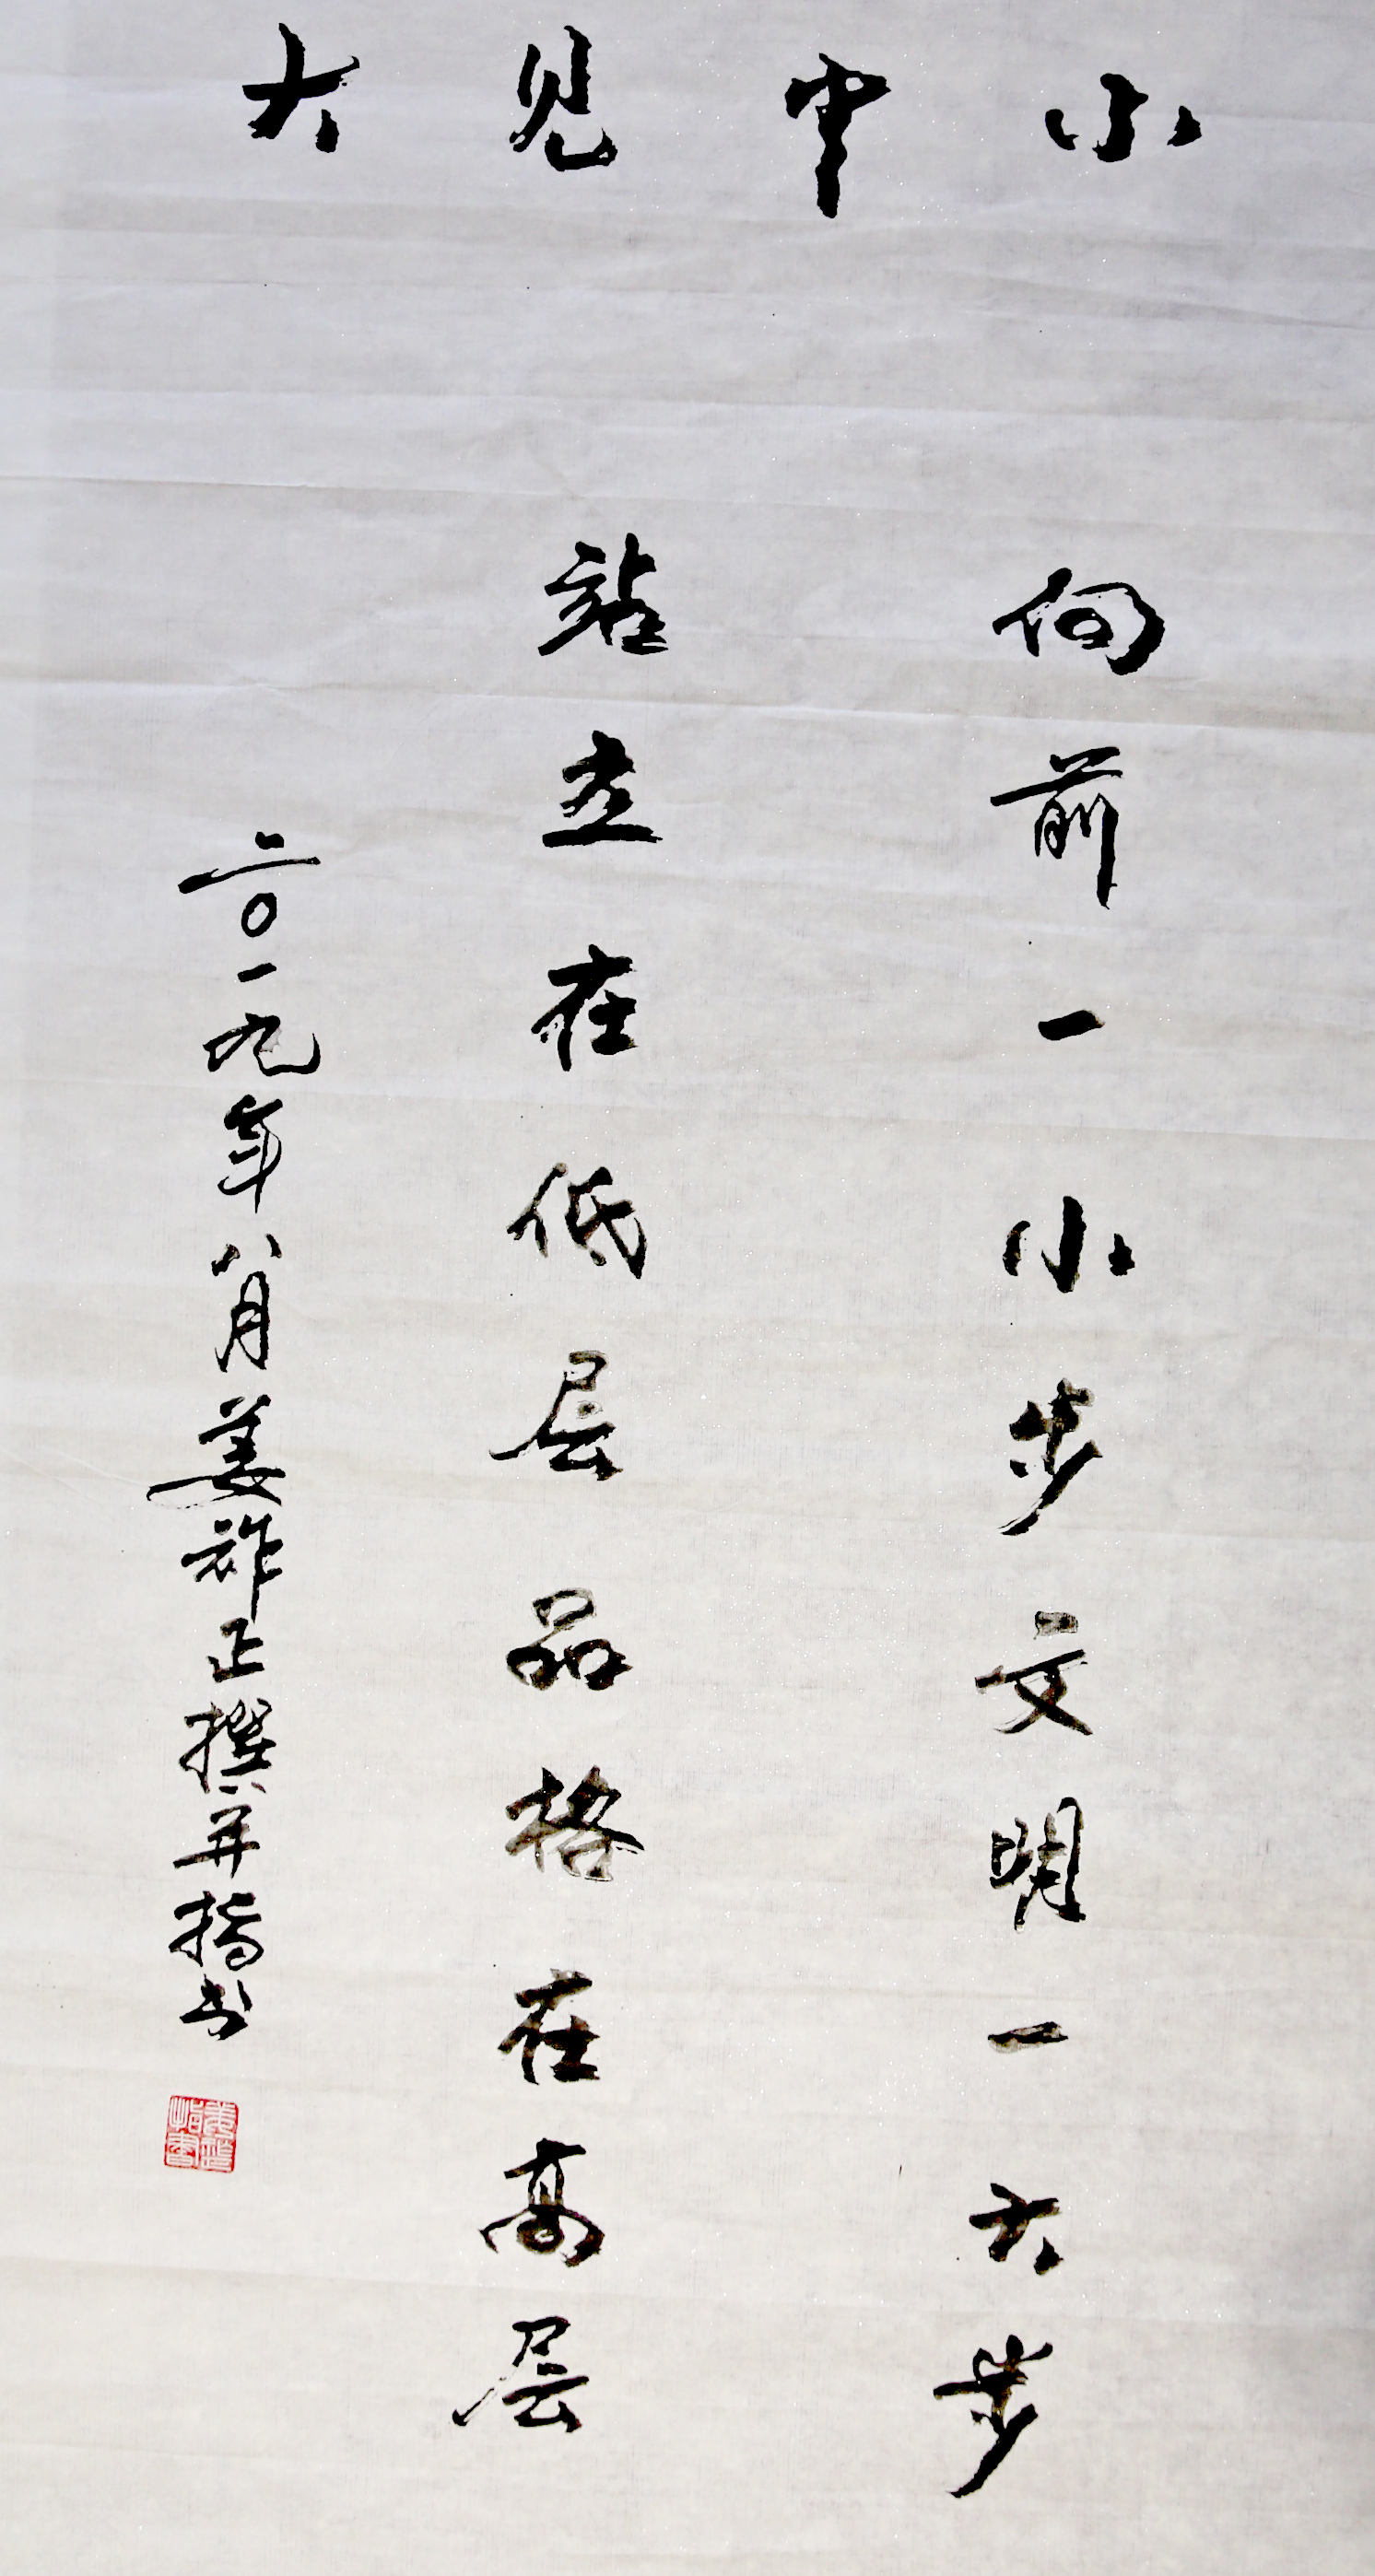 小中见大
向前一小步文明一大步
站立在低层品格在高层
二〇一九年八月姜祚正撰并指书
姜祚正指书